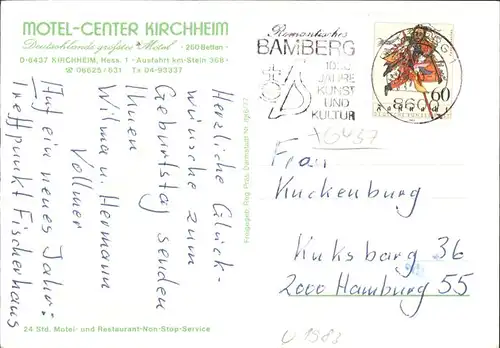 MOTEL-CENTER KIRCHHEIM
Deutschlands größtes Motel · 260 Betten ·
D-6437 KIRCHHEIM, Hess. 1 · Ausfahrt km-Stein 368 ·
☎ 06625/631 Tx 04-93337
Herzliche Glück-
wünsche zum
Geburtstag senden
Ihnen
Wilma u. Hermann
Vollmer
Auf ein neues Jahr:
Treffpunkt Fischerhaus
24 Std. Motel- und Restaurant-Non-Stop-Service
Romantisches
BAMBERG
JAHRE
KUNST
UND
KULTUR
60
8600
Frau
Kuckenburg
Kuksberg 36
2000 Hamburg 55
1983